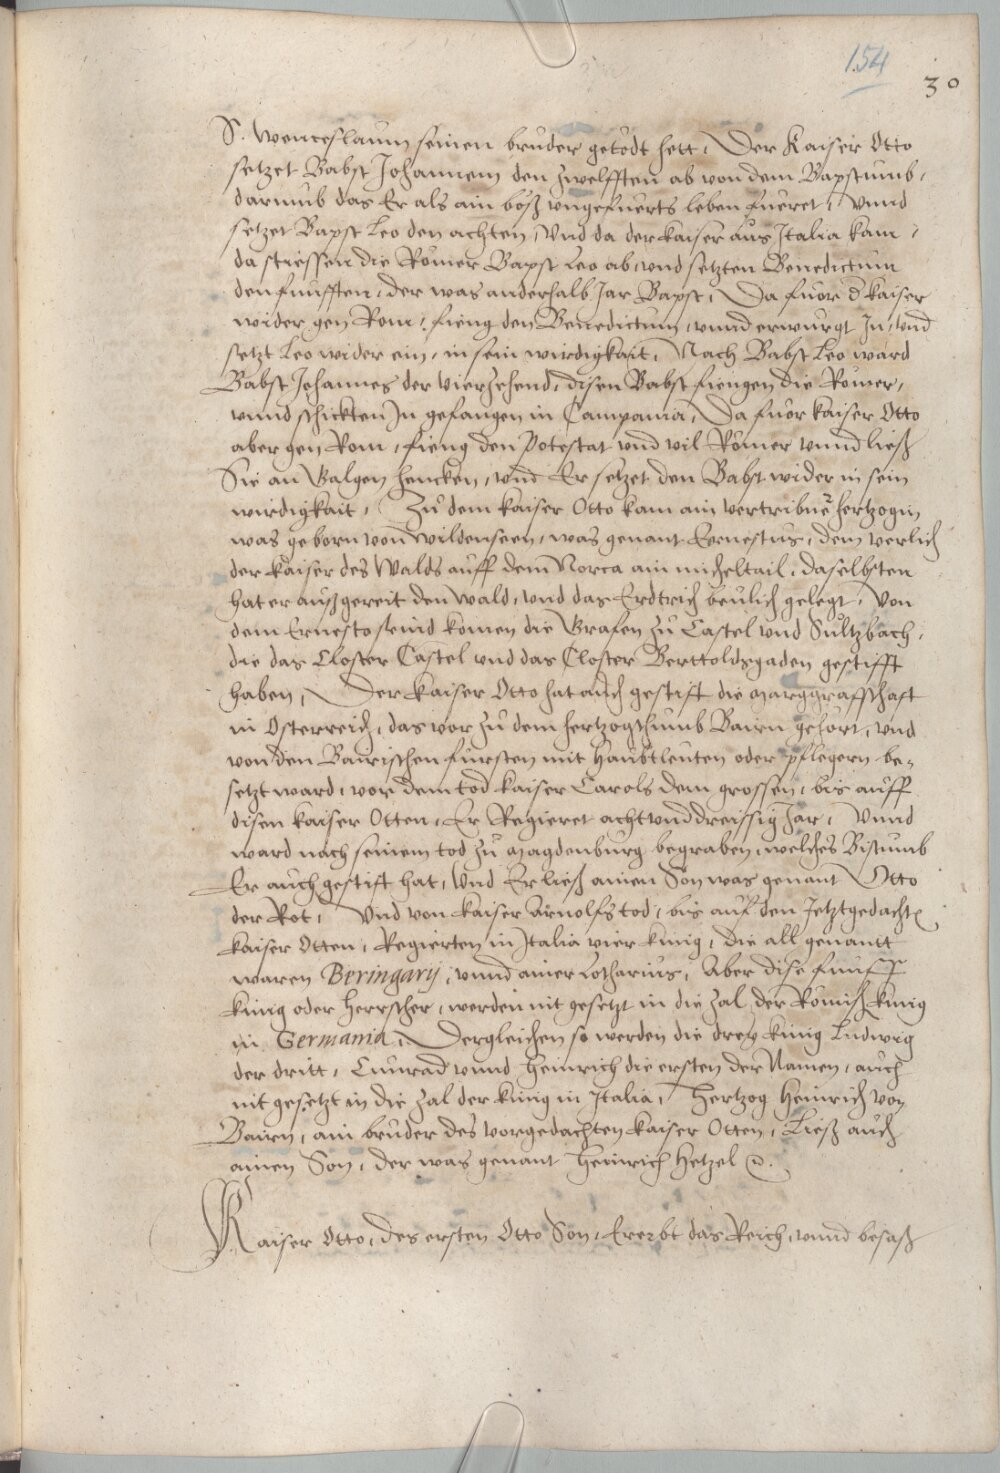 154
30
S. Wenceslaum seinen bruder getödt hett, Der Kaiser Otto
setzet Babst Johannem den zwelfften ab von dem Bapstumb,
darumb das Er als ain böß ungefuerts leben fueret, Unnd
setzet Bapst Leo den achten, Und da der kaiser aus Italia kam,
da stiessen die Römer Bapst Leo ab, und setzten Benedictum
den funfften, der was anderhalb Jar Bapst, Da fuor d kaiser
wider gen Rom, fieng den Benedictum, unnd erwurgt In, und
setzt Leo wider ein, in sein wirdigkait, Nach Babst Leo ward
Babst Johannes der vierzehend, disen Babst fiengen die Römer,
unnd schickten In gefangen in Campania, Da fuor kaiser Otto
aber gen Rom, fieng den Potestat und vil Römer unnd ließ
Sie an Galgen hencken, und Er setzet den Babst wider in sein
wirdigkait, Zu dem kaiser Otto kam ain vertribnē hertzogin
was geborn von Wildenseen, was genant Ernestus, dem verlich
der kaiser des Walds auff dem Norca ain michel tail, daselbsten
hat er außgereit den wald, und das Erdtrich beulich gelegt, Von
dem Ernesto seind komen die Grafen zu Castel und Sultzbach,
die das Closter Castel und das Closter Berttoldsgaden gestifft
haben, Der kaiser Otto hat auch gestift die marggraffschaft
in Osterreich, das vor zu dem hertzogthumb Bairn gehört, und
von den Bairischen fursten mit Haubtleuten oder pflegern be-
setzt ward, vor dem tod kaiser Carols dem grossen, bis auff
disen kaiser Otten, Er Regieret acht und dreissig Jar, Unnd
ward nach seinem tod zu Magdenburg begraben, welches Bistumb
Er auch gestift hat, Und Er ließ ainen Son was genant Otto
der Rot, Und von kaiser Arnolfs tod, bis auf den Jetztgedacht
kaiser Otten, Regierten in Italia vier kinig, die all genantt
waren Beringarij, unnd ainer Lotharius, Aber dise funff
kinig oder herrscher, werden nit gesetzt in die zal der Römisch kinig
in Germania, Dergleichen so werden die drey kinig Ludwig
der dritt, Cunrad unnd Heinrich die ersten der Namen, auch
nit gesetzt in die zal der kinig in Italia, Hertzog Heinrich von
Bairn, ain bruder des vorgedachten kaiser Otten, Ließ auch
ainen Son, der was genant Heinrich Hetzel
Kaiser Otto, des ersten Otto Son, Ererbt das Reich, unnd besaß